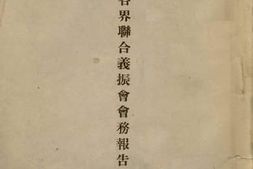 各界聯合義振會會務報告